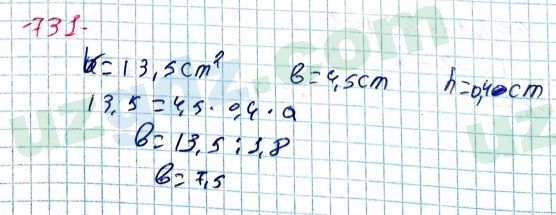 731.
b=13,5cm² b=4,5cm h=0,4cm
13,5=4,5·0,4·a
b=13,5:1,8
b=7,5